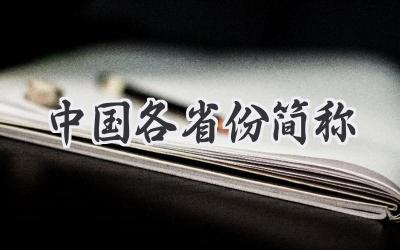 中国各省份简称